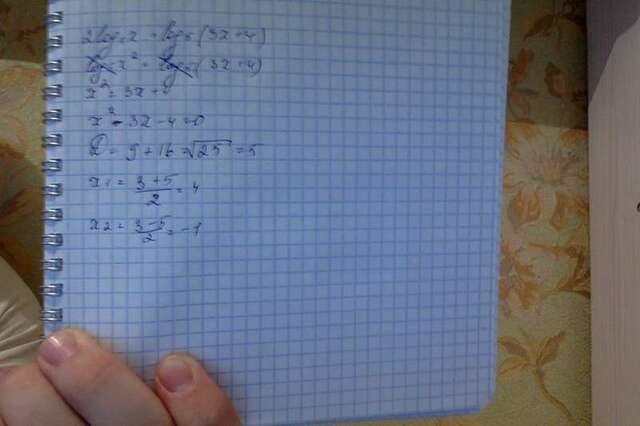 2log₅x = log₅(3x+4)
log₅x² = log₅(3x+4)
x² = 3x+4
x² - 3x - 4 = 0
D = 9+16 = √25 = 5
x1 = (3+5)/2 = 4
x2 = (3-5)/2 = -1